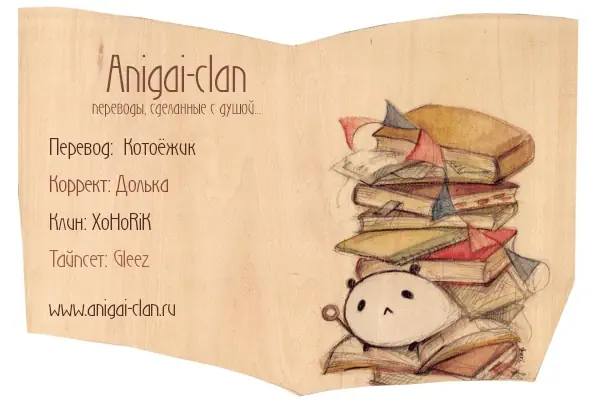 Anigai-clan
переводы, сделанные с душой...
Перевод: Котоёжик
Коррект: Долька
Клин: XoHoRiK
Тайпсет: Gleez
www.anigai-clan.ru